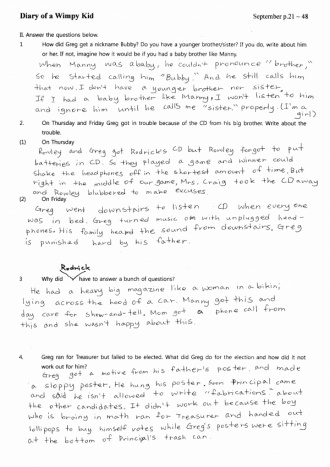 Diary of a Wimpy Kid
September p.21 – 48
II. Answer the questions below.
1 How did Greg get a nickname Bubby? Do you have a younger brother/sister? If you do, write about him
or her. If not, imagine how it would be if you had a baby brother like Manny.
When Manny was a baby, he couldn't pronounce "brother,"
So he started calling him "Bubby." And he still calls him
that now. I don't have a younger brother nor sister.
If I had a baby brother like Manny, I won't listen to him
and ignore him until he calls me "sister" properly. (I'm a
girl)
2. On Thursday and Friday Greg got in trouble because of the CD from his big brother. Write about the
trouble.
(1) On Thursday
Rowley and Greg got Rodrick's CD but Rowley forgot to put
batteries in CD. So they played a game and winner could
shake the headphones off in the shortest amount of time. But
right in the middle of our game, Mrs. Craig took the CD away
and Rowley blubbered to make excuses
(2) On Friday
Greg went downstairs to listen CD when every one
was in bed. Greg turned music on with unplugged head-
phones. His family heard the sound from downstairs, Greg
is punished hard by his father.
Rodrick
3 Why did have to answer a bunch of questions?
He had a heavy big magazine like a woman in a bikini,
lying across the hood of a car. Manny got this and
day care for show-and-tell. Mom got a phone call from
this and she wasn't happy about this.
4. Greg ran for Treasurer but failed to be elected. What did Greg do for the election and how did it not
work out for him?
Greg got a motive from his father's poster. and made
a sloppy poster. He hung his poster, Soon Principal came
and said he isn't allowed to write "fabrications" about
the other candidates. It didn't work out because the boy
who is in math ran for Treasurer and handed out
lollipops to buy himself votes while Greg's posters were sitting
at the bottom of Principal's trash can.